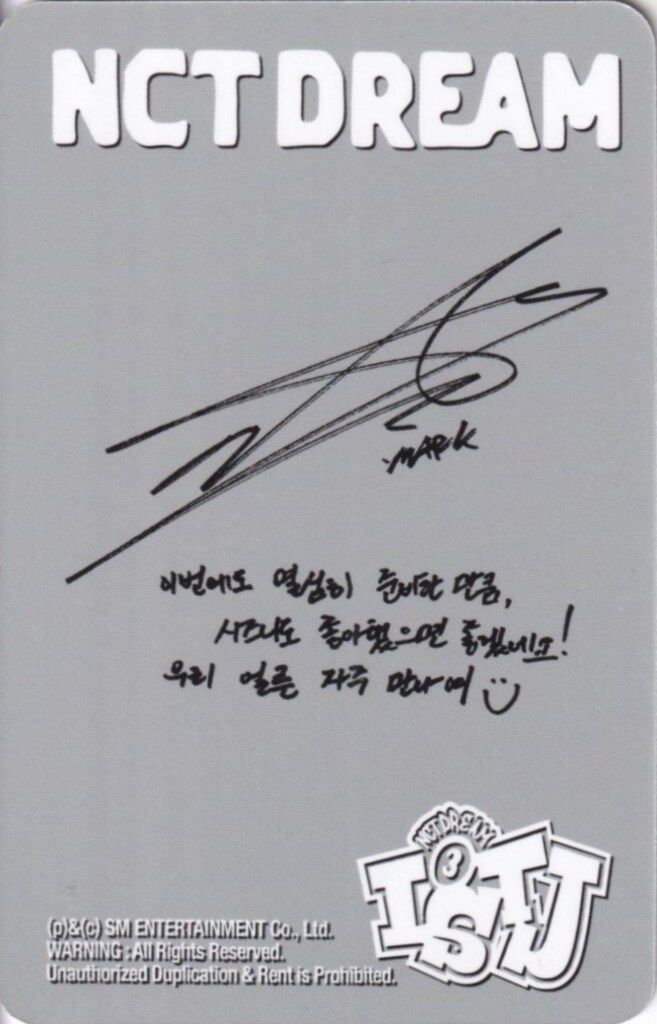 NCT DREAM
MARK
이번에도 열심히 준비한 만큼,
시즈니도 좋아했으면 좋겠네요!
우리 얼른 자주 만나여
NCT DREAM
3
ISTJ
(p)&(c) SM ENTERTAINMENT Co., Ltd.
WARNING : All Rights Reserved.
Unauthorized Duplication & Rent is Prohibited.